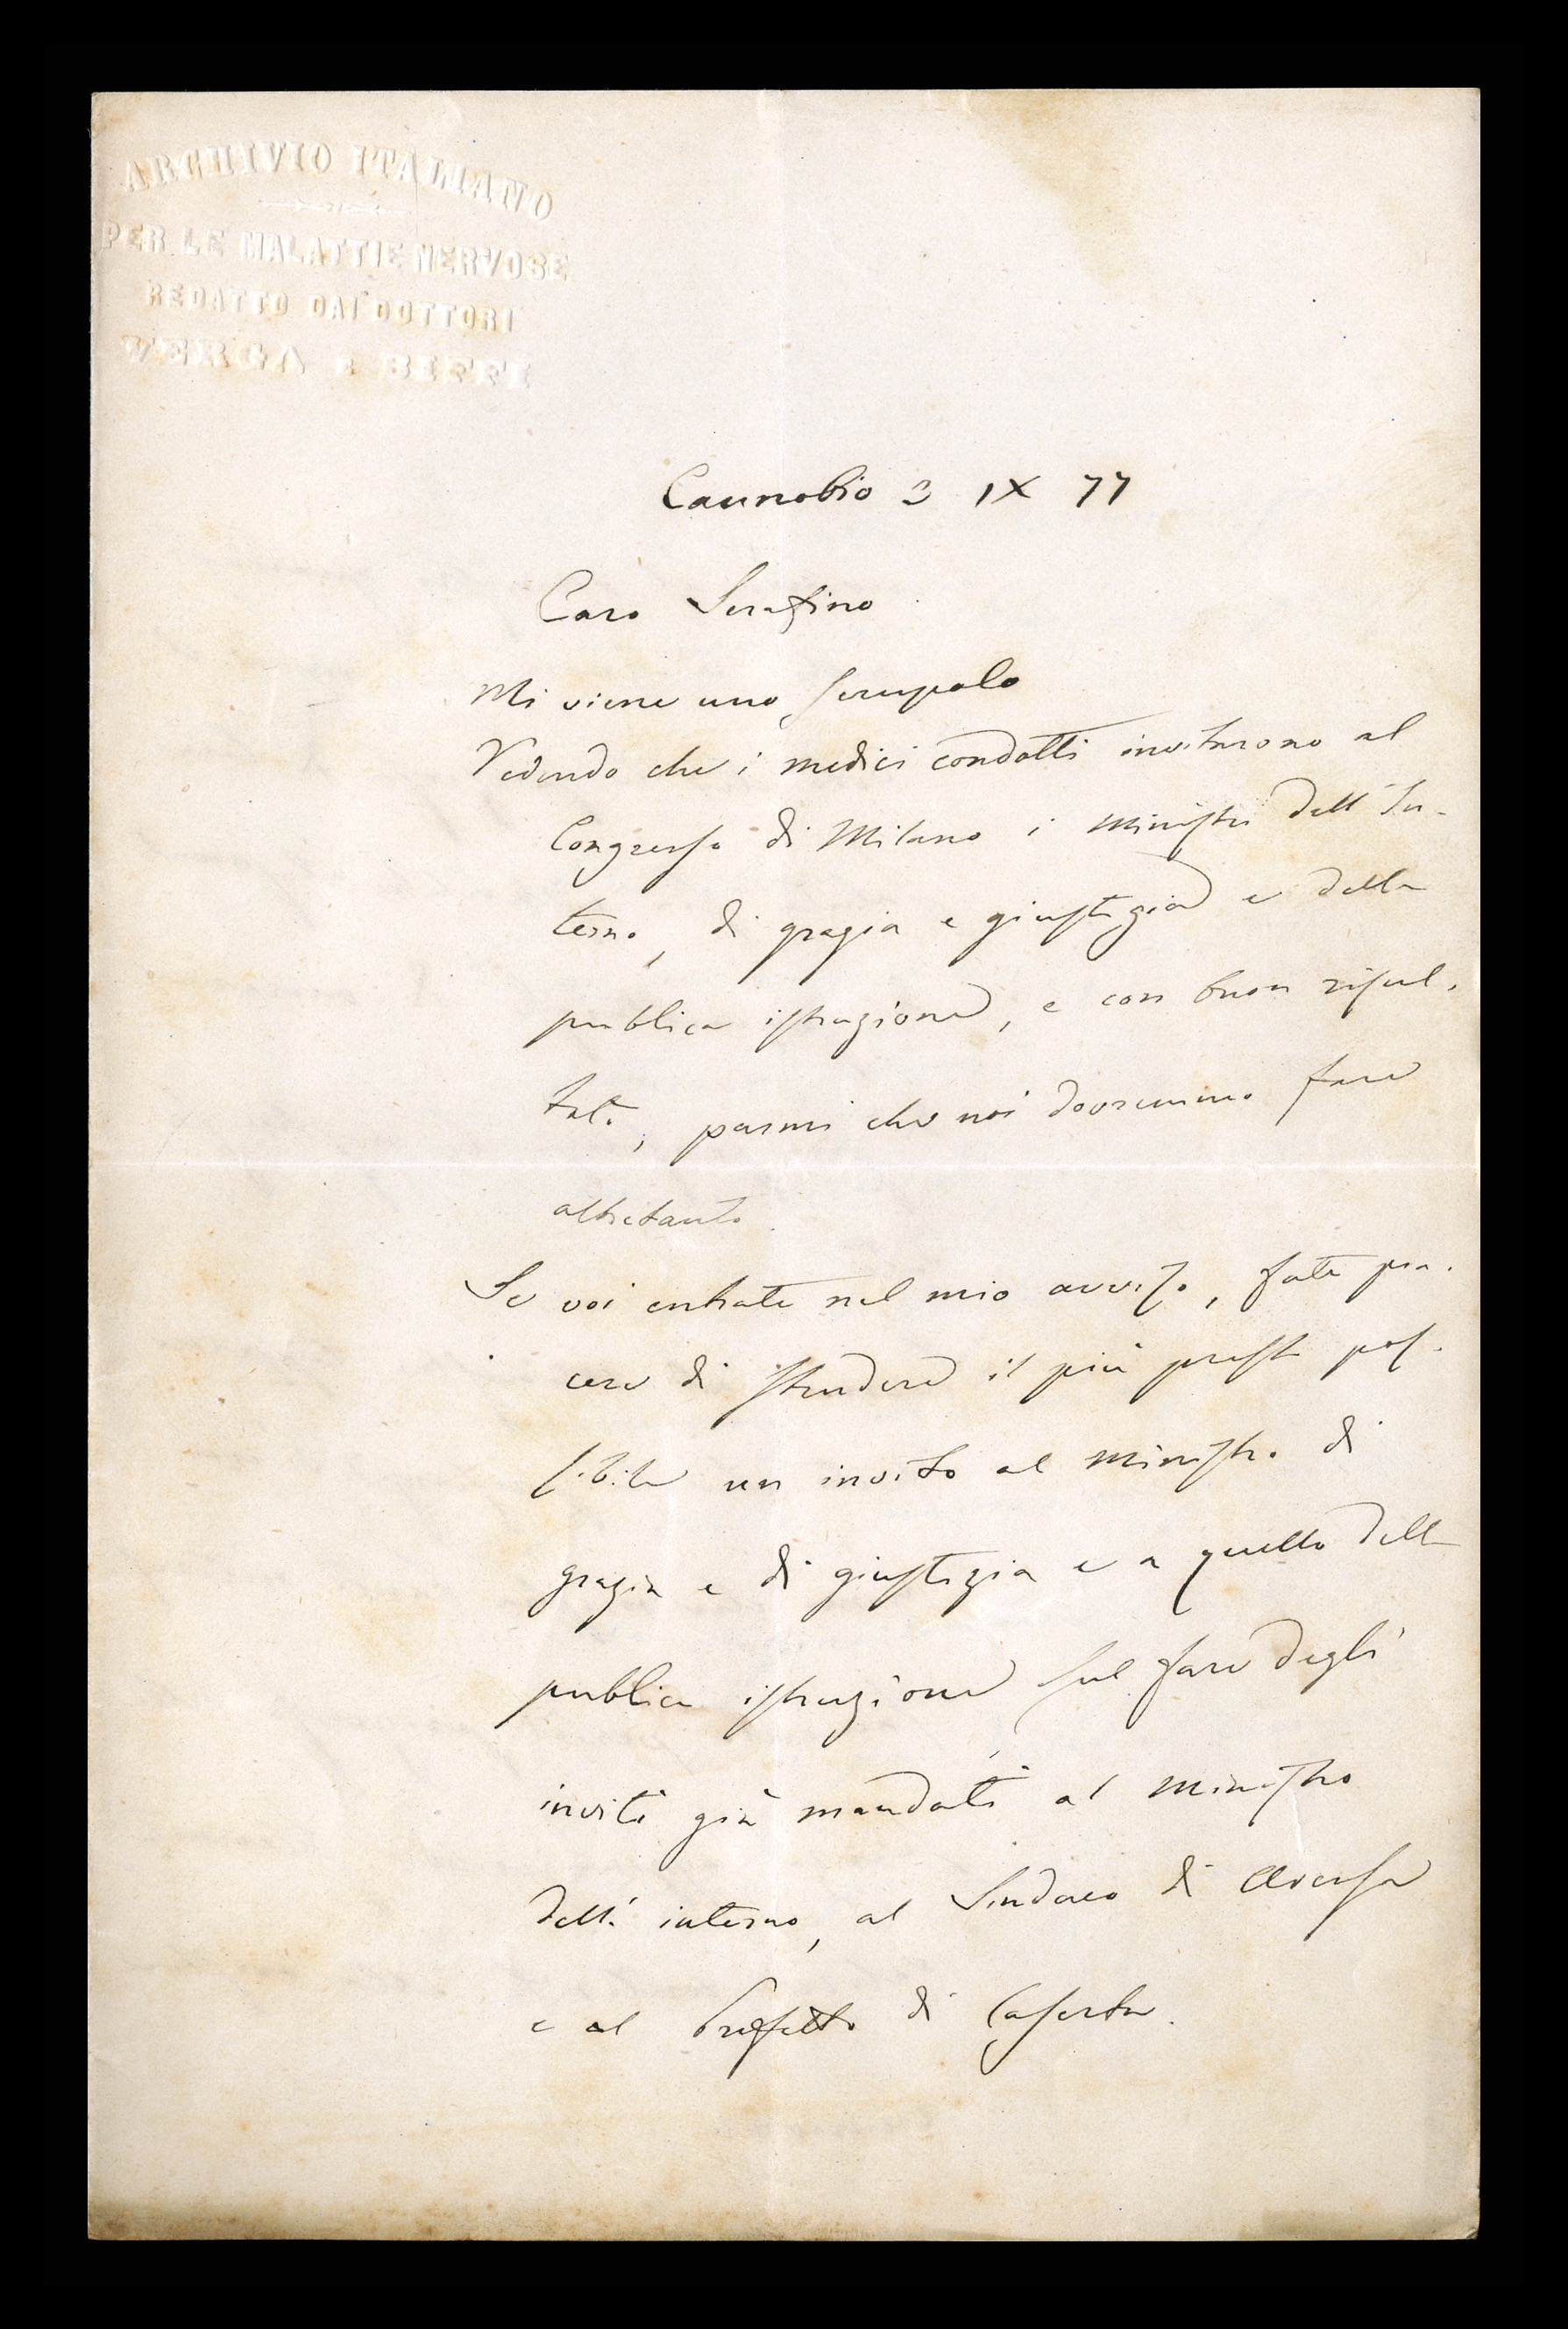 ARCHIVIO ITALIANO
PER LE MALATTIE NERVOSE
REDATTO DAI DOTTORI
VERGA E BIFFI
Cannobio 3 IX 77
Caro Serafino
Mi viene uno scrupolo
Vedendo che i medici condotti invitarono al
Congresso di Milano i Ministri dell'In-
terno, di grazia e giustizia e della
pubblica istruzione, e con buon risul-
tato, parmi che noi dovremmo fare
altretanto.
Se voi entrate nel mio avviso, fate pia-
cere di stendere il più presto pos-
sibile un invito al Ministro di
grazia e di giustizia e a quello della
publica istruzione sul fare degli
inviti già mandati al Ministro
dell'interno, al Sindaco di Aversa
e al Prefetto di Caserta.